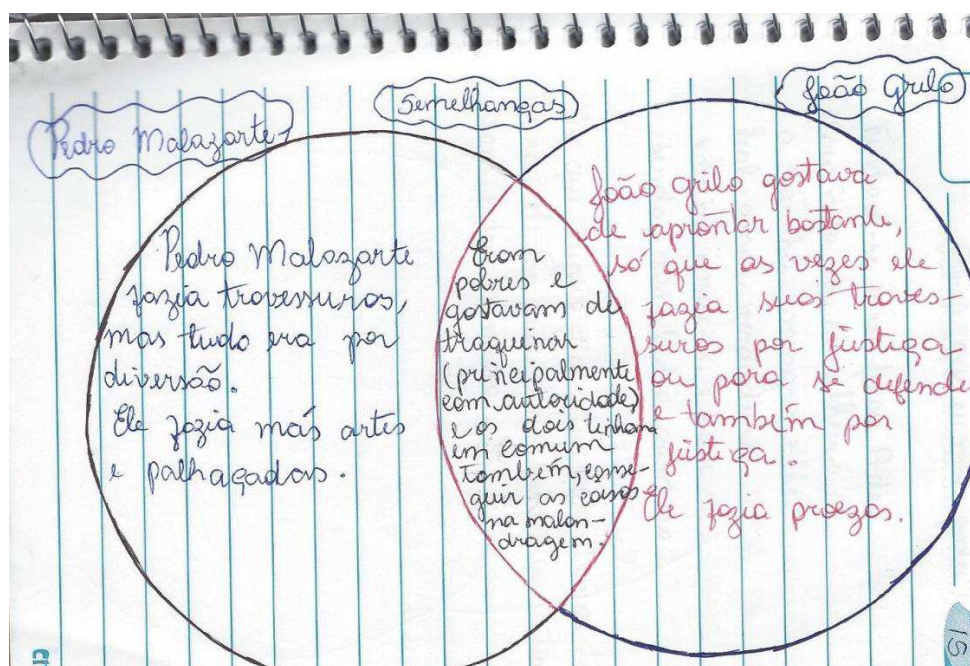 Pedro Malazarte
Semelhanças
João Grilo
Pedro Malazarte
fazia travessuras,
mas tudo era por
diversão.
Ele fazia más artes
e palhaçadas.
Eram
pobres e
gostavam de
traquinar
(principalmente
com autoridades)
e os dois tinham
em comum
também, conse-
guir as coisas
na malan-
dragem.
João grilo gostava
de aprontar bastante,
só que as vezes ele
fazia suas traves-
suras por justiça
ou para se defende
e também por
justiça.
Ele fazia proezas.
15